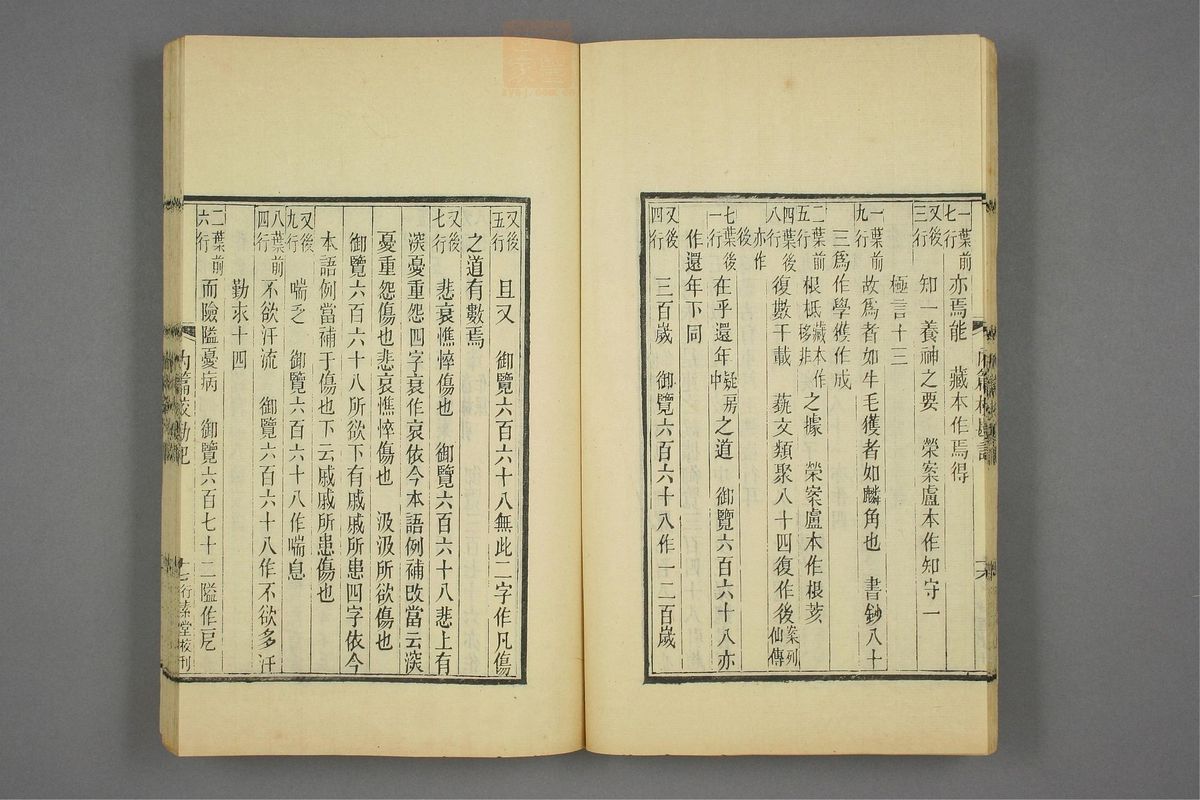 一葉前七行 亦焉能 藏本作焉得
又後三行 知一養神之要 榮案盧本作知守一
極言十三
一葉前九行 故爲者如牛毛獲者如麟角也 書鈔八十
三爲作學獲作成
二葉前五行 根柢藏本作移非之據 榮案盧本作根荄
四葉後八行 復數千載 蓺文類聚八十四復作後案列仙傳
亦作後
七葉後一行 在乎還年之道 御覽六百六十八亦
作還年下同
又後四行 三百歲 御覽六百六十八作一二百歲
內篇校勘記
又後五行 且又 御覽六百六十八無此二字作凡傷
之道有數焉
又後七行 悲哀憔悴傷也 御覽六百六十八悲上有
深憂重怨四字哀作哀依今本語例補改當云深
憂重怨傷也悲哀憔悴傷也 汲汲所欲傷也
御覽六百六十八所欲下有戚戚所患四字依今
本語例當補于傷也下云戚戚所患傷也
又後九行 喘乏 御覽六百六十八作喘息
八葉前四行 不欲汗流 御覽六百六十八作不欲多汗
勤求十四
二葉前六行 而險隘憂病 御覽六百七十二隘作戹
內篇校勘記 行素堂校刊